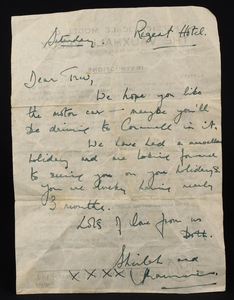 Saturday Regent Hotel.
Dear Trev,
We hope you like
the motor car - maybe you'll
be driving to Cornwall in it.
We have had a marvellous
holiday and are looking forward
to seeing you on your holidays
You are lucky having nearly
3 months.
Lots of love from us
both.
Sheilah and
XXXX